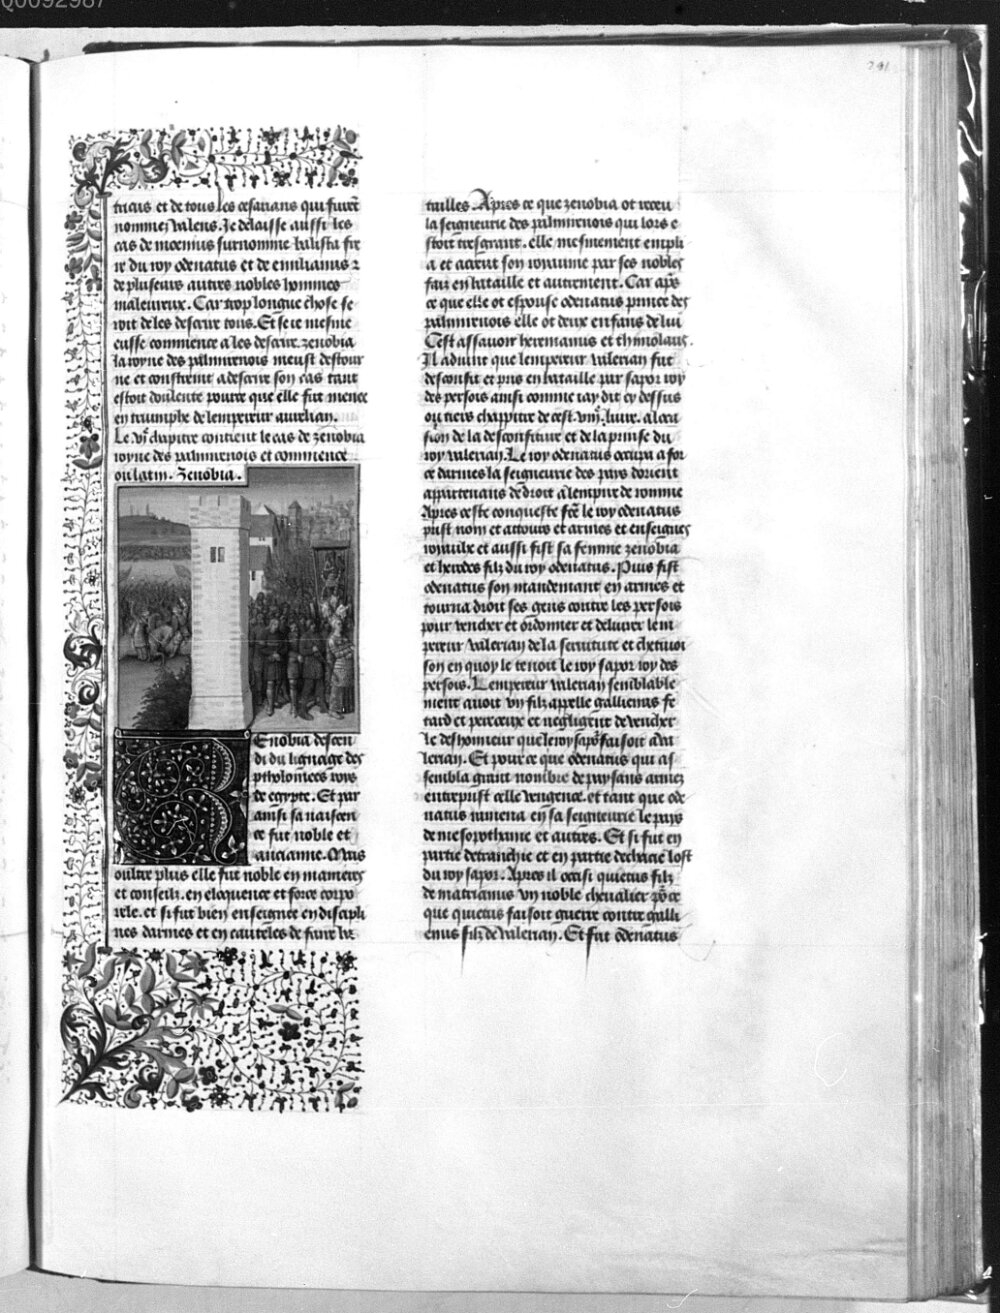 Q0092987
241
triais et de tous les cesarians qui furẽt
nommez valens. Je delaisse aussi les
cas de moenius surnomme balista fir
ie du roy odenatus et de emilianus ⁊
de plusieurs autres nobles hommes
maleureux. Car trop longue chose se
roit de les descrire tous. Et se ie mesme
eusse commence a les descrire. zenobia
la royne des palmurenois meust destour
ne et constreint a descrire son cas tant
estoit doulente pource que elle fut menee
en triumphe de lempereur aurelian.
Le vjᵉ chapitre contient le cas de zenobia
royne des palmurenois et commence
ou latin. Zenobia.
Zenobia descen
di du lignaige des
ptholomees roys
de egypte. Et par
ainsi sa naiscen
ce fut noble et
ancianne. Mais
oultre plus elle fut noble en manieres
et conseilz. en eloquence et force corpo
rele. et si fut bien enseignee en discipli
nes darmes et en cauteles de faire ba
tailles. Apres ce que zenobia ot receu
la seigneurie des palmurenois qui lors e
stoit tresgrant. elle mesmement empli
a et acreut son royaume par ses nobles
faiz en bataille et autrement. Car apͤs
ce que elle ot espouse odenatus prince des
palmurenois elle ot deux enfans de lui
Cest assauoir heremanus et thimolaus.
Il aduint que lempereur valerian fut
desconfit et pris en bataille par sapor roy
des persois ainsi comme iay dit cy dessus
ou tiers chappitre de cest viijᵉ. liure. a loca
sion de la desconfiture et de la prinse du
roy valerian. Le roy odenatus occupa a for
ce darmes la seigneurie des pays dorient
appartenans de droit a lempire de romme
Apres ceste conqueste fcẽ le roy odenatus
prist nom et attours et armes et enseignes
royaulx et aussi fist sa femme zenobia
et herodes filz du roy odenatus. Puis fist
odenatus son mandemant en armes et
tourna droit ses gens contre les persois
pour vencher et ordonner et deliurer lem
pereur valerian de la seruitute et chetiuoi
son en quoy le tenoit le roy sapor roy des
persois. Lempereur valerian semblable
ment auoit vn filz appelle gallienus fe
tard et pereceux et negligent de vencher
le deshonneur que le roy sapor faisoit a va
lerian. Et pour ce que odenatus qui as
sembla grant nombre de paysans armez
entreprist celle vengence. et tant que ode
natus ramena en sa seigneurie le pays
de mesopothame et autres. Et si fut en
partie detranchie et en partie dechacie lost
du roy sapor. Apres il occist quietus filz
de matrianus vn noble cheualier põr ce
que quietus faisoit guerre contre galli
enus filz de valerian. Et fut odenatus